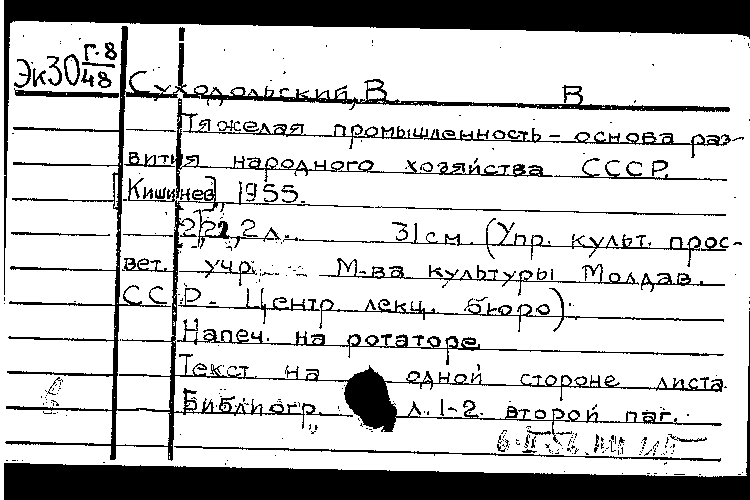 Эк30 Г-8/48
Суходольский, В. В
Тяжелая промышленность - основа раз-
вития народного хозяйства СССР.
[Кишинев], 1955.
2, 22, 2 л. 31 см. (Упр. культ. прос-
вет. учр. М-ва культуры Молдав.
ССР. Центр. лекц. бюро).
Напеч. на ротаторе
Текст на одной стороне листа
Библиогр., л. 1-2. второй паг.